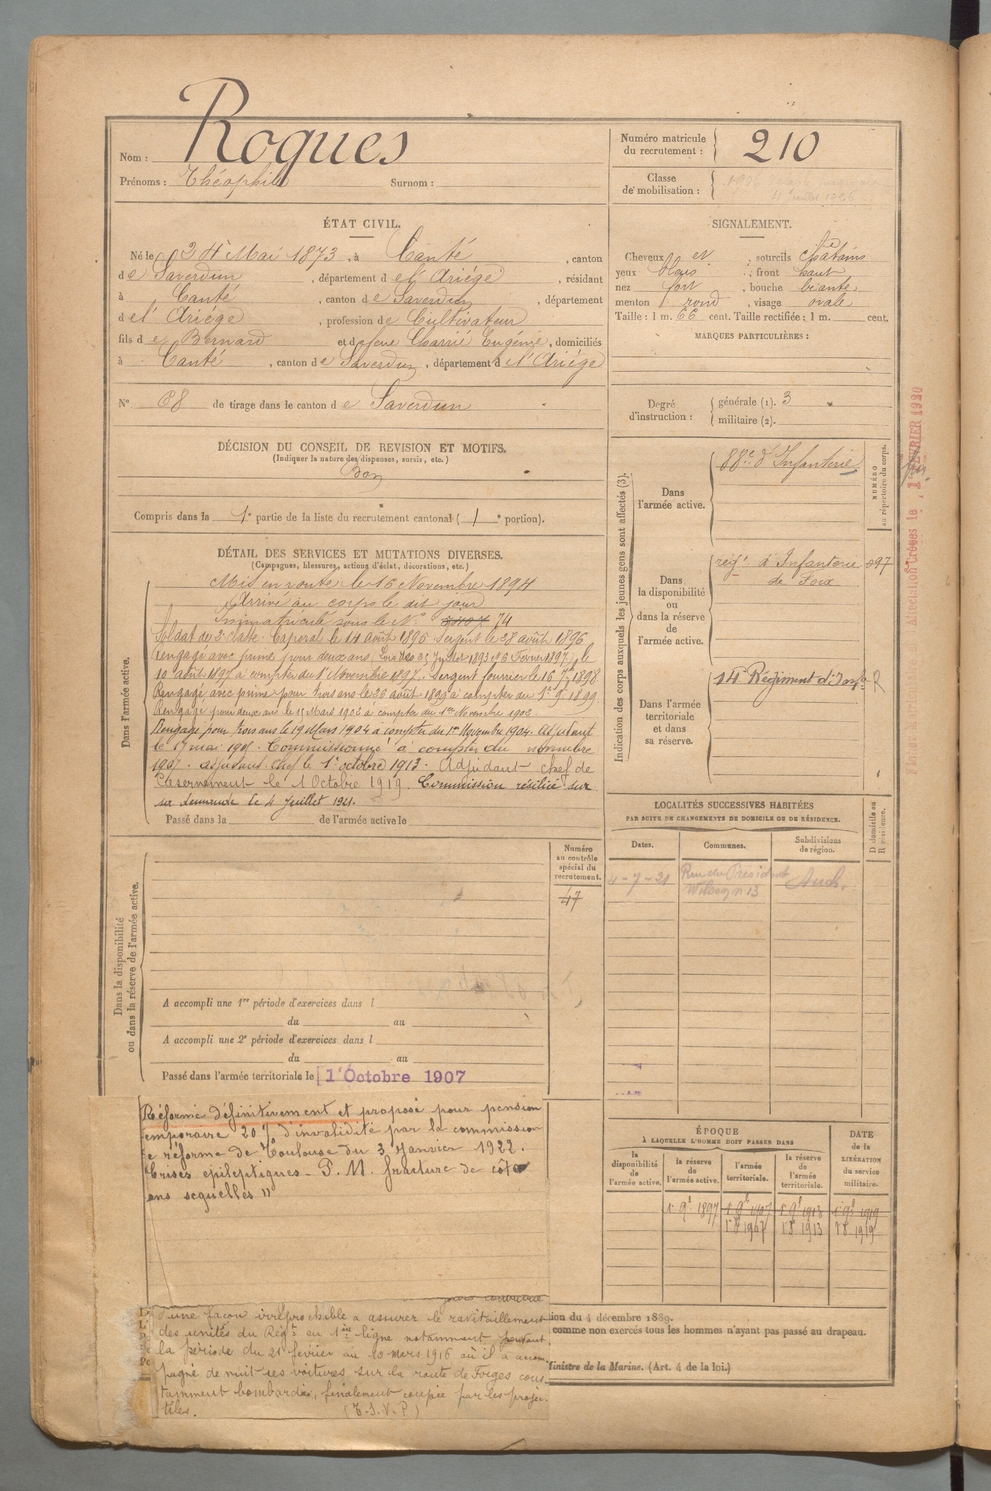 Nom : Roques
Prénoms : Théophile Surnom :
Numéro matricule du recrutement : 210
Classe de mobilisation :
ÉTAT CIVIL.
Né le 24 Mai 1873, à Canté, canton
de Saverdun, département de l'Ariége, résidant
à Canté, canton de Saverdun, département
de l'Ariége, profession de Cultivateur
fils de Bernard et de feue Charrié Eugénie, domiciliés
à Canté, canton de Saverdun, département de l'Ariége
N° 68 de tirage dans le canton de Saverdun
SIGNALEMENT.
Cheveux et , sourcils châtains
yeux , front haut
nez fort , bouche béante
menton rond , visage ovale
Taille : 1 m. 66 cent. Taille rectifiée : 1 m. cent.
MARQUES PARTICULIÈRES :
Degré d'instruction : générale (1). 3
militaire (2).
DÉCISION DU CONSEIL DE REVISION ET MOTIFS.
(Indiquer la nature des dispenses, sursis, etc.)
Bon
Compris dans la 1e partie de la liste du recrutement cantonal ( 1e portion).
DÉTAIL DES SERVICES ET MUTATIONS DIVERSES.
(Campagnes, blessures, actions d'éclat, décorations, etc.)
Dans l'armée active.
Mis en route le 16 Novembre 1894
Arrivé au corps le dit jour
Immatriculé sous le N° 74
Soldat de 2e classe. Caporal le 14 août 1895 Sergent le 28 août 1896
Rengagé avec prime pour deux ans le
10 août 1897 à compter du 1er Novembre 1897. Sergent fourrier le 16 1898
Rengagé avec prime pour trois ans le 26 août 1899 à compter du 1er 9bre 1899
Rengagé pour deux ans le 15 Mars 1902 à compter du 1er Novembre 1902
Rengagé pour trois ans le 19 Mars 1904 à compter du 1er Novembre 1904. Adjudant
le 17 mai 1905. Commissionné à compter du novembre
1907. adjudant chef le 1er octobre 1913. Adjudant chef de
Casernement le 1 Octobre 1919. Commission résiliée sur
sa demande le 4 juillet 1921.
Passé dans la de l'armée active le
Indication des corps auxquels les jeunes gens sont affectés (3).
NUMÉRO au répertoire du corps.
Dans l'armée active.
88e d'Infanterie
Dans la disponibilité ou dans la réserve de l'armée active.
régt d'Infanterie de Foix 897
Dans l'armée territoriale et dans sa réserve.
14e Régiment d'Infie R
1 FÉVRIER 1920
LOCALITÉS SUCCESSIVES HABITÉES
PAR SUITE DE CHANGEMENTS DE DOMICILE OU DE RÉSIDENCE.
D domicile ou R résidence.
Dates. Communes. Subdivisions de région.
4-7-21 Rue du Président Wilson n° 13 Auch.
Numéro au contrôle spécial du recrutement.
47
Dans la disponibilité ou dans la réserve de l'armée active.
A accompli une 1re période d'exercices dans l
du au
A accompli une 2e période d'exercices dans l
du au
Passé dans l'armée territoriale le 1er Octobre 1907
Réformé définitivement et proposé pour pension
temporaire 20% d'invalidité par la commission
de réforme de Toulouse du 3 Janvier 1922.
Crises épileptiques. P. M. fracture de côte
sans séquelles "
ÉPOQUE
À LAQUELLE L'HOMME DOIT PASSER DANS
la disponibilité de l'armée active. la réserve de l'armée active. l'armée territoriale. la réserve de l'armée territoriale.
DATE de la LIBÉRATION du service militaire.
1er 9bre 1897 1er 9bre 1907 1er 9bre 1913 1er 9bre 1919
1 8 1907 1 8 1913 1 8 1919
d'une façon irréprochable a assuré le ravitaillement
des unités du Régt en 1ère ligne notamment pendant
la période du 21 février au 10 mars 1916 où il a accom
pagné de nuit ses voitures sur la route de Forges cons
tamment bombardée, finalement coupée par les projec-
tiles. (T.S.V.P.)
ion du 4 décembre 1889.
comme non exercés tous les hommes n'ayant pas passé au drapeau.
Ministre de la Marine. (Art. 4 de la loi.)